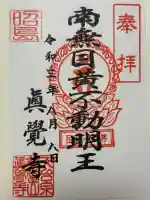 奉拝
昭島
南無国重不動明王
令和三年八月八日
眞覺寺